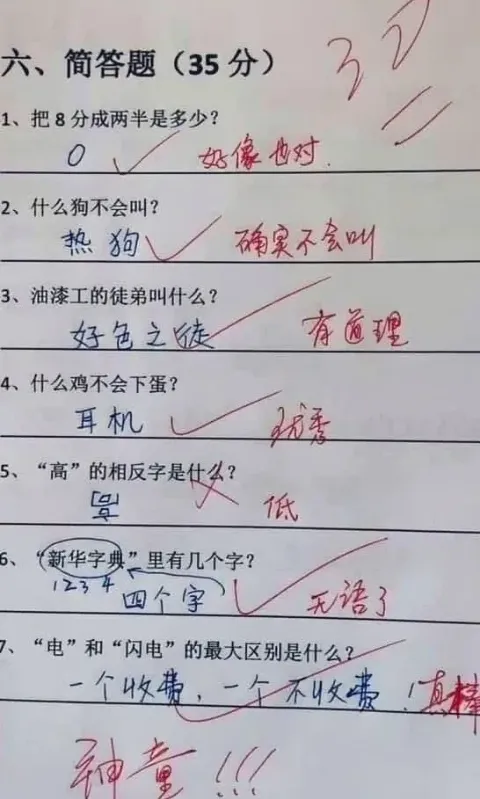 六、简答题（35 分）
1、把 8 分成两半是多少？
0 好像也对.
2、什么狗不会叫？
热狗 确实不会叫
3、油漆工的徒弟叫什么？
好色之徒 有道理
4、什么鸡不会下蛋？
耳机 优秀
5、“高”的相反字是什么？
低
6、“新华字典”里有几个字？
1 2 3 4 四个字 无语了
7、“电”和“闪电”的最大区别是什么？
一个收费，一个不收费！真棒
神童!!!